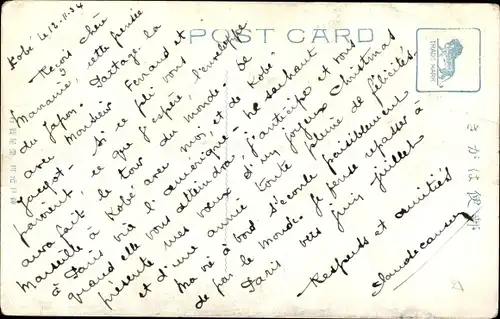 POST CARD
TRADE MARK
Kobé le 12.11.34
Reçois chère
Mamanie, cette pensée
du Japon. Partage la
avec Monsieur Fernand et
Jacquot. Si ce pli vous
parvient, ce que j'espère, l'enveloppe
aura fait le tour du monde. De
Marseille à Kobé avec moi, et de Kobé
à Paris via l'Amérique. Ne sachant
quand elle vous atteindra j'anticipe et vous
présente mes vœux d'un joyeux Christmas
et d'une année toute pleine de félicités.
Ma vie à bord s'écoule paisiblement
de par le monde. Je pense repasser à
Paris vers juin juillet
Respects et amitiés